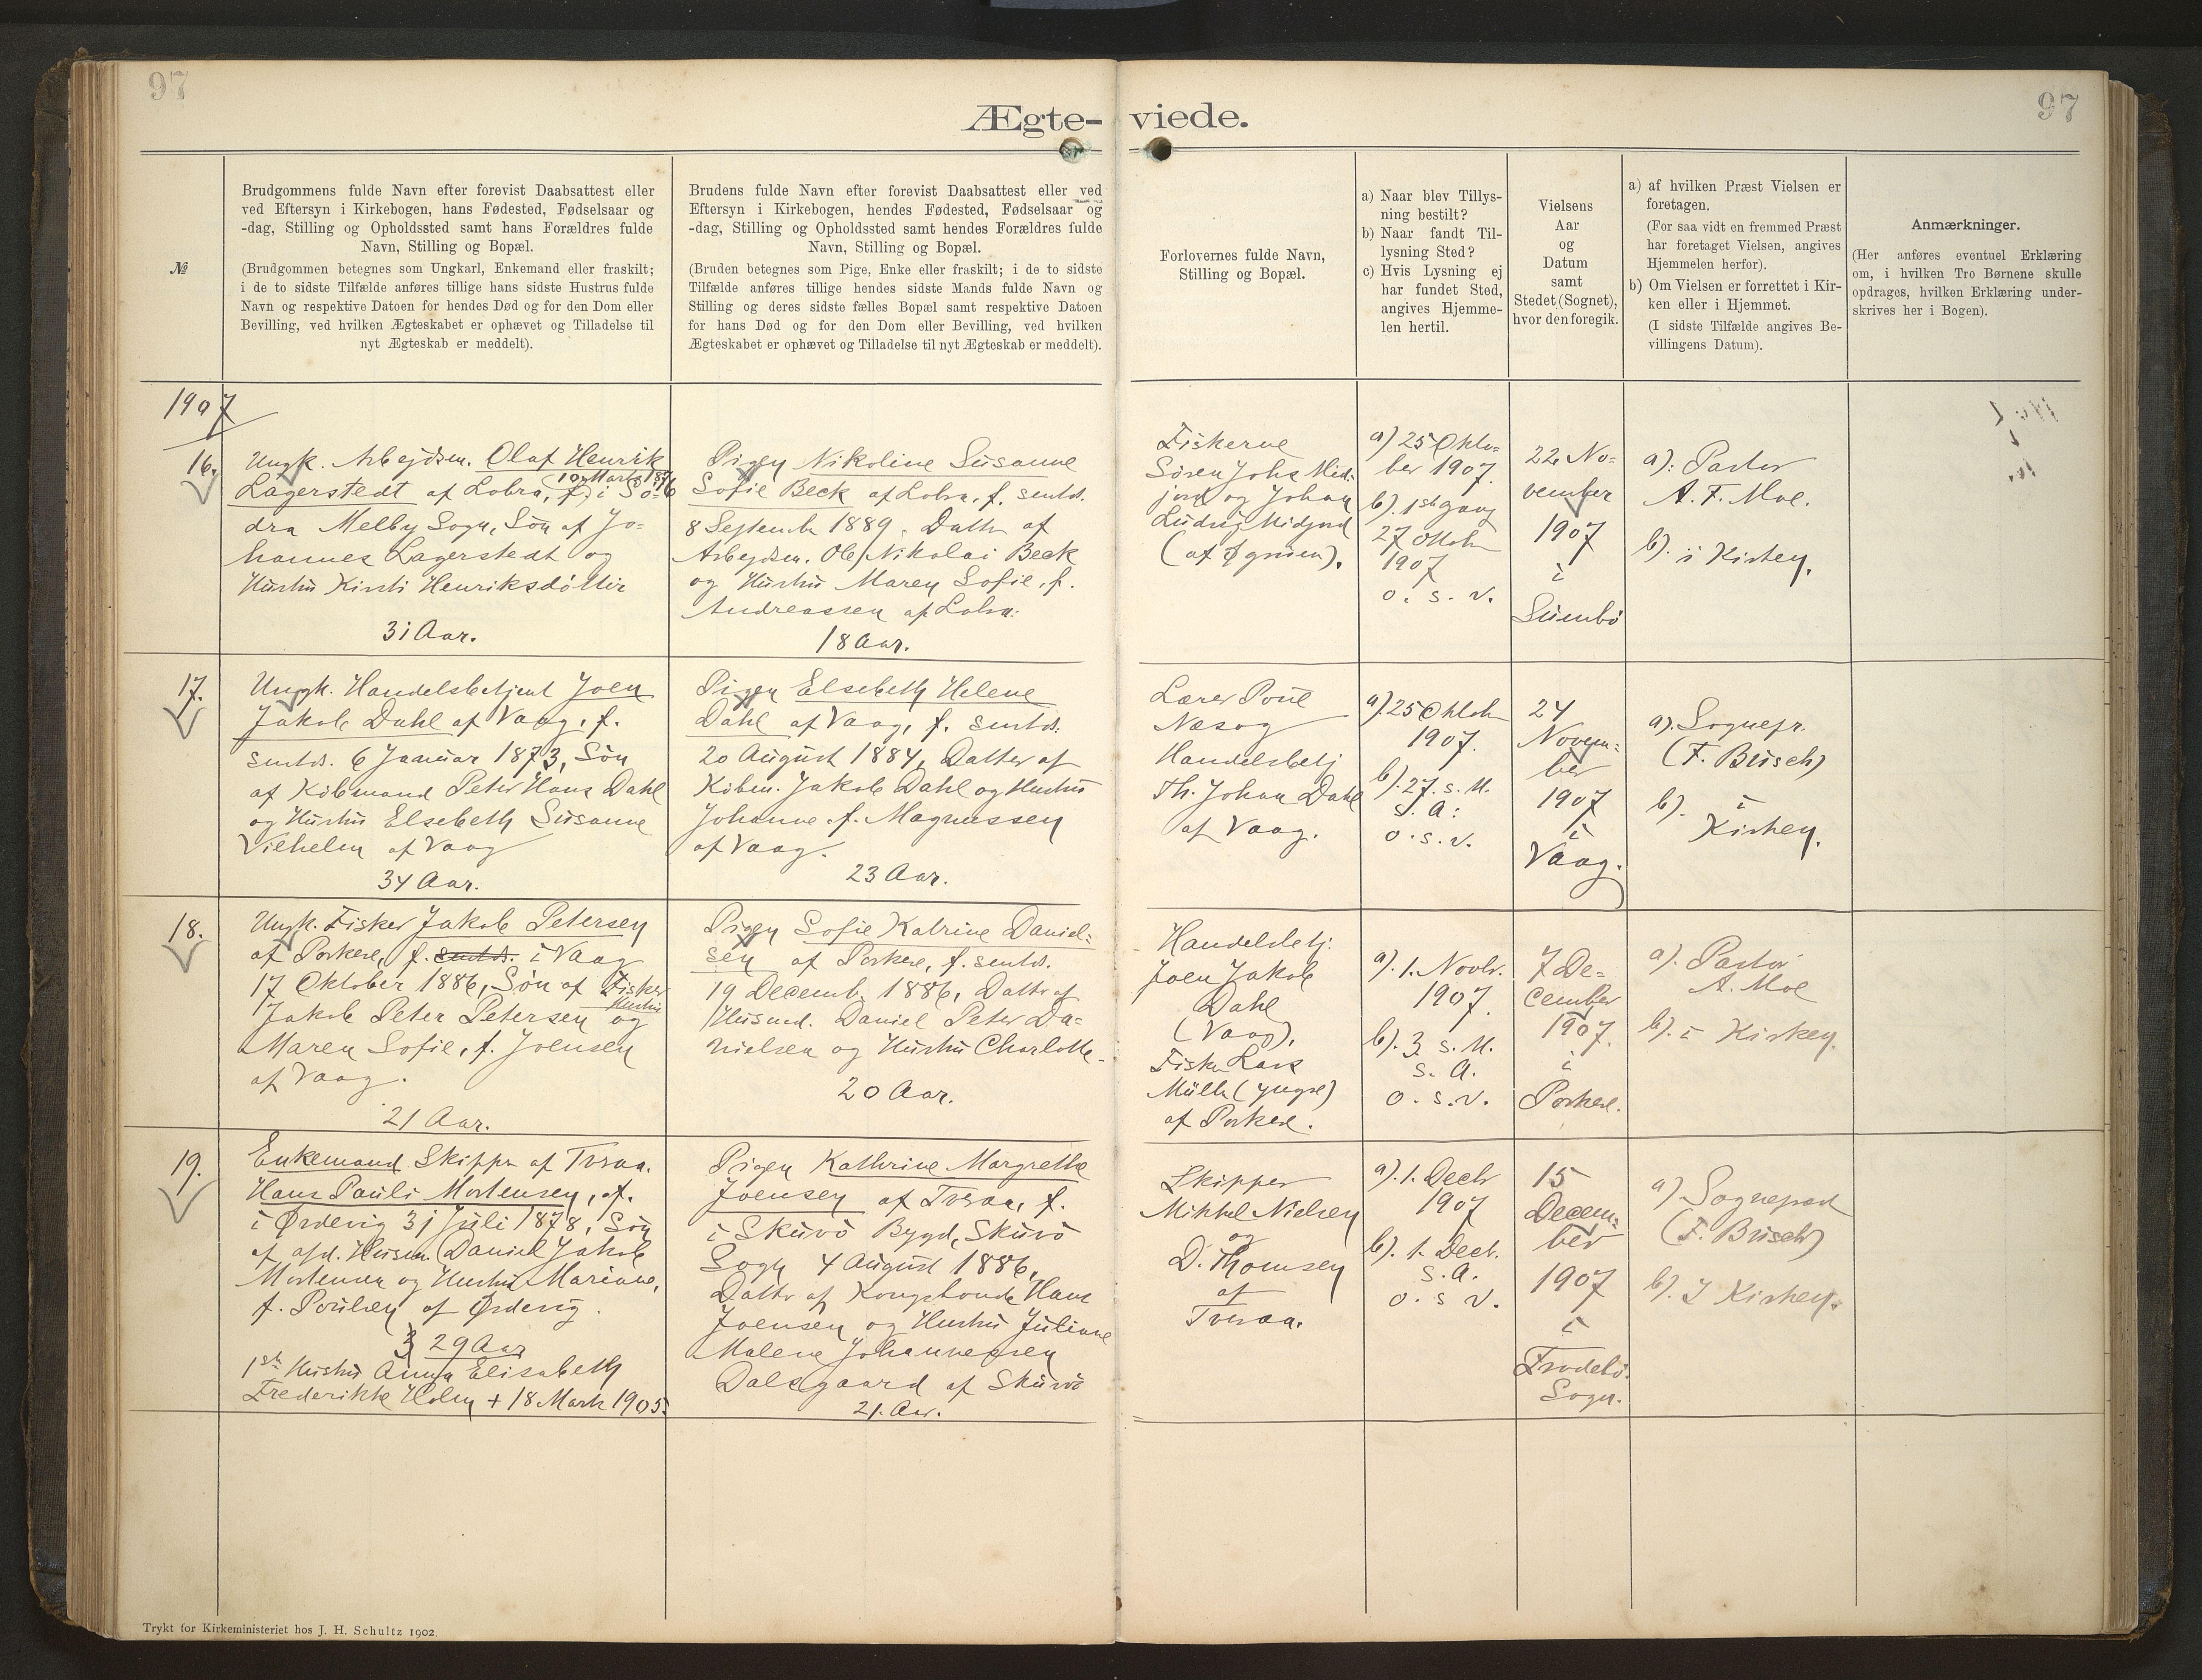 97
97
Ægte-
viede.
№
Brudgommens fulde Navn efter forevist Daabsattest eller
ved Eftersyn i Kirkebogen, hans Fødested, Fødselsaar og
-dag, Stilling og Opholdssted samt hans Forældres fulde
Navn, Stilling og Bopæl.
(Brudgommen betegnes som Ungkarl, Enkemand eller fraskilt;
i de to sidste Tilfælde anføres tillige hans sidste Hustrus fulde
Navn og respektive Datoen for hendes Død og for den Dom eller
Bevilling, ved hvilken Ægteskabet er ophævet og Tilladelse til
nyt Ægteskab er meddelt).
Brudens fulde Navn efter forevist Daabsattest eller ved
Eftersyn i Kirkebogen, hendes Fødested, Fødselsaar og
-dag, Stilling og Opholdssted samt hendes Forældres fulde
Navn, Stilling og Bopæl.
(Bruden betegnes som Pige, Enke eller fraskilt; i de to sidste
Tilfælde anføres tillige hendes sidste Mands fulde Navn og
Stilling og deres sidste fælles Bopæl samt respektive Datoen
for hans Død og for den Dom eller Bevilling, ved hvilken
Ægteskabet er ophævet og Tilladelse til nyt Ægteskab er meddelt).
Forlovernes fulde Navn,
Stilling og Bopæl.
a) Naar blev Tillys-
ning bestilt?
b) Naar fandt Til-
lysning Sted?
c) Hvis Lysning ej
har fundet Sted,
angives Hjemme-
len hertil.
Vielsens
Aar
og
Datum
samt
Stedet (Sognet),
hvor den foregik.
a) af hvilken Præst Vielsen er
foretagen.
(For saa vidt en fremmed Præst
har foretaget Vielsen, angives
Hjemmelen herfor).
b) Om Vielsen er forrettet i Kir-
ken eller i Hjemmet.
(I sidste Tilfælde angives Be-
villingens Datum).
Anmærkninger.
(Her anføres eventuel Erklæring
om, i hvilken Tro Børnene skulle
opdrages, hvilken Erklæring under-
skrives her i Bogen).
1907
16.
Ungk. Arbejdsm. Olaf Henrik
10 Marts 1876
Lagerstedt af Lobra, f. i Sö-
dra Melby Sogn, Søn af Jo-
hannes Lagerstedt og
Hustru Kirsti Henriksdóttir
31 Aar.
Pigen Nikoline Susanne
Sofie Beck af Lobra, f. smtds.
8 Septemb 1889. Datter af
Arbejdsm. Ole Nikolai Beck
og Hustru Maren Sofie, f.
Andreassen af Lobra.
18 Aar.
Fiskerne
Søren Johs Mid-
jord og Johan
Ludvig Midjord
(af Øgruen).
a) 25 Okto-
ber 1907.
b). 1ste gang
27 Oktob
1907
o. s. v.
22 No-
vember
1907
i
Sumbö
a): Pastor
A. F. Moe.
b). i Kirken.
17.
Ungk. Handelsbetjent Joen
Jakob Dahl af Vaag, f.
smtds. 6 Januar 1873, Søn
af Købmand Peter Hans Dahl
og Hustru Elsebeth Susanne
Vilhelm af Vaag
34 Aar.
Pigen Elsebeth Helene
Dahl af Vaag, f. smtds.
20 August 1884, Datter af
Købm. Jakob Dahl og Hustru
Johanne f. Magnussen
af Vaag.
23 Aar.
Lærer Poul
Næsog
Handelsbetj
Th. Johan Dahl
af Vaag.
a). 25 Oktob
1907.
b). 27. s. M.
s. A:
o. s. v.
24
Novem-
ber
1907
i
Vaag.
a). Sognepr.
(F. Brisch)
b). i
Kirken.
18.
Ungk. Fisker Jakob Petersen
af Porkere, f. smtds. i Vaag
17 Oktober 1886, Søn af Fisker
Jakob Peter Petersen og
Hustru
Maren Sofie, f. Joensen
af Vaag.
21 Aar.
Pigen Sofie Katrine Daniel-
sen af Porkere, f. smtds.
19 Decemb. 1886, Dattr af
Husmd. Daniel Peter Da-
nielsen og Hustru Charlotte
20 Aar.
Handelsbetj.
Joen Jakob
Dahl
(Vaag),
Fisker Lars
Müller (yngre)
af Porkere.
a). 1. Novbr.
1907.
b). 3 s. M.
s. A.
o. s. v.
7 De-
cember
1907.
i
Porkere.
a). Pastor
A. Moe
b). i Kirken.
19.
Enkemand Skipper af Tvraa.
Hans Pauli Mortensen, f.
i Ørdevig 31 Juli 1878, Søn
af afd. Husm. Daniel Jakob
Mortensen og Hustru Mariane,
f. Poulsen af Ørdevig.
29 Aar
1ste Hustru Anna Elisabeth
Frederikke Holm + 18 Marts 1905.
Pigen Kathrine Margrethe
Joensen af Tvraa, f.
i Skuvö Bygd, Skuvö
Sogn 4 August 1886,
Dattr af Kongsbonde Hans
Joensen og Hustru Juliane
Malene Johannesen
Dalsgaard af Skuvö
21. Aar.
Skipper
Mikkel Nielsen
og
D. Thomsen
af
Tvraa.
a). 1. Decbr
1907
b). 1. Decb.
s. A.
o. s v.
15
Decem-
ber
1907
i
Frodebö
Sogn.
a) Sognepræst
(F. Brisch)
b). I Kirken.
Trykt for Kirkeministeriet hos J. H. Schultz 1902.